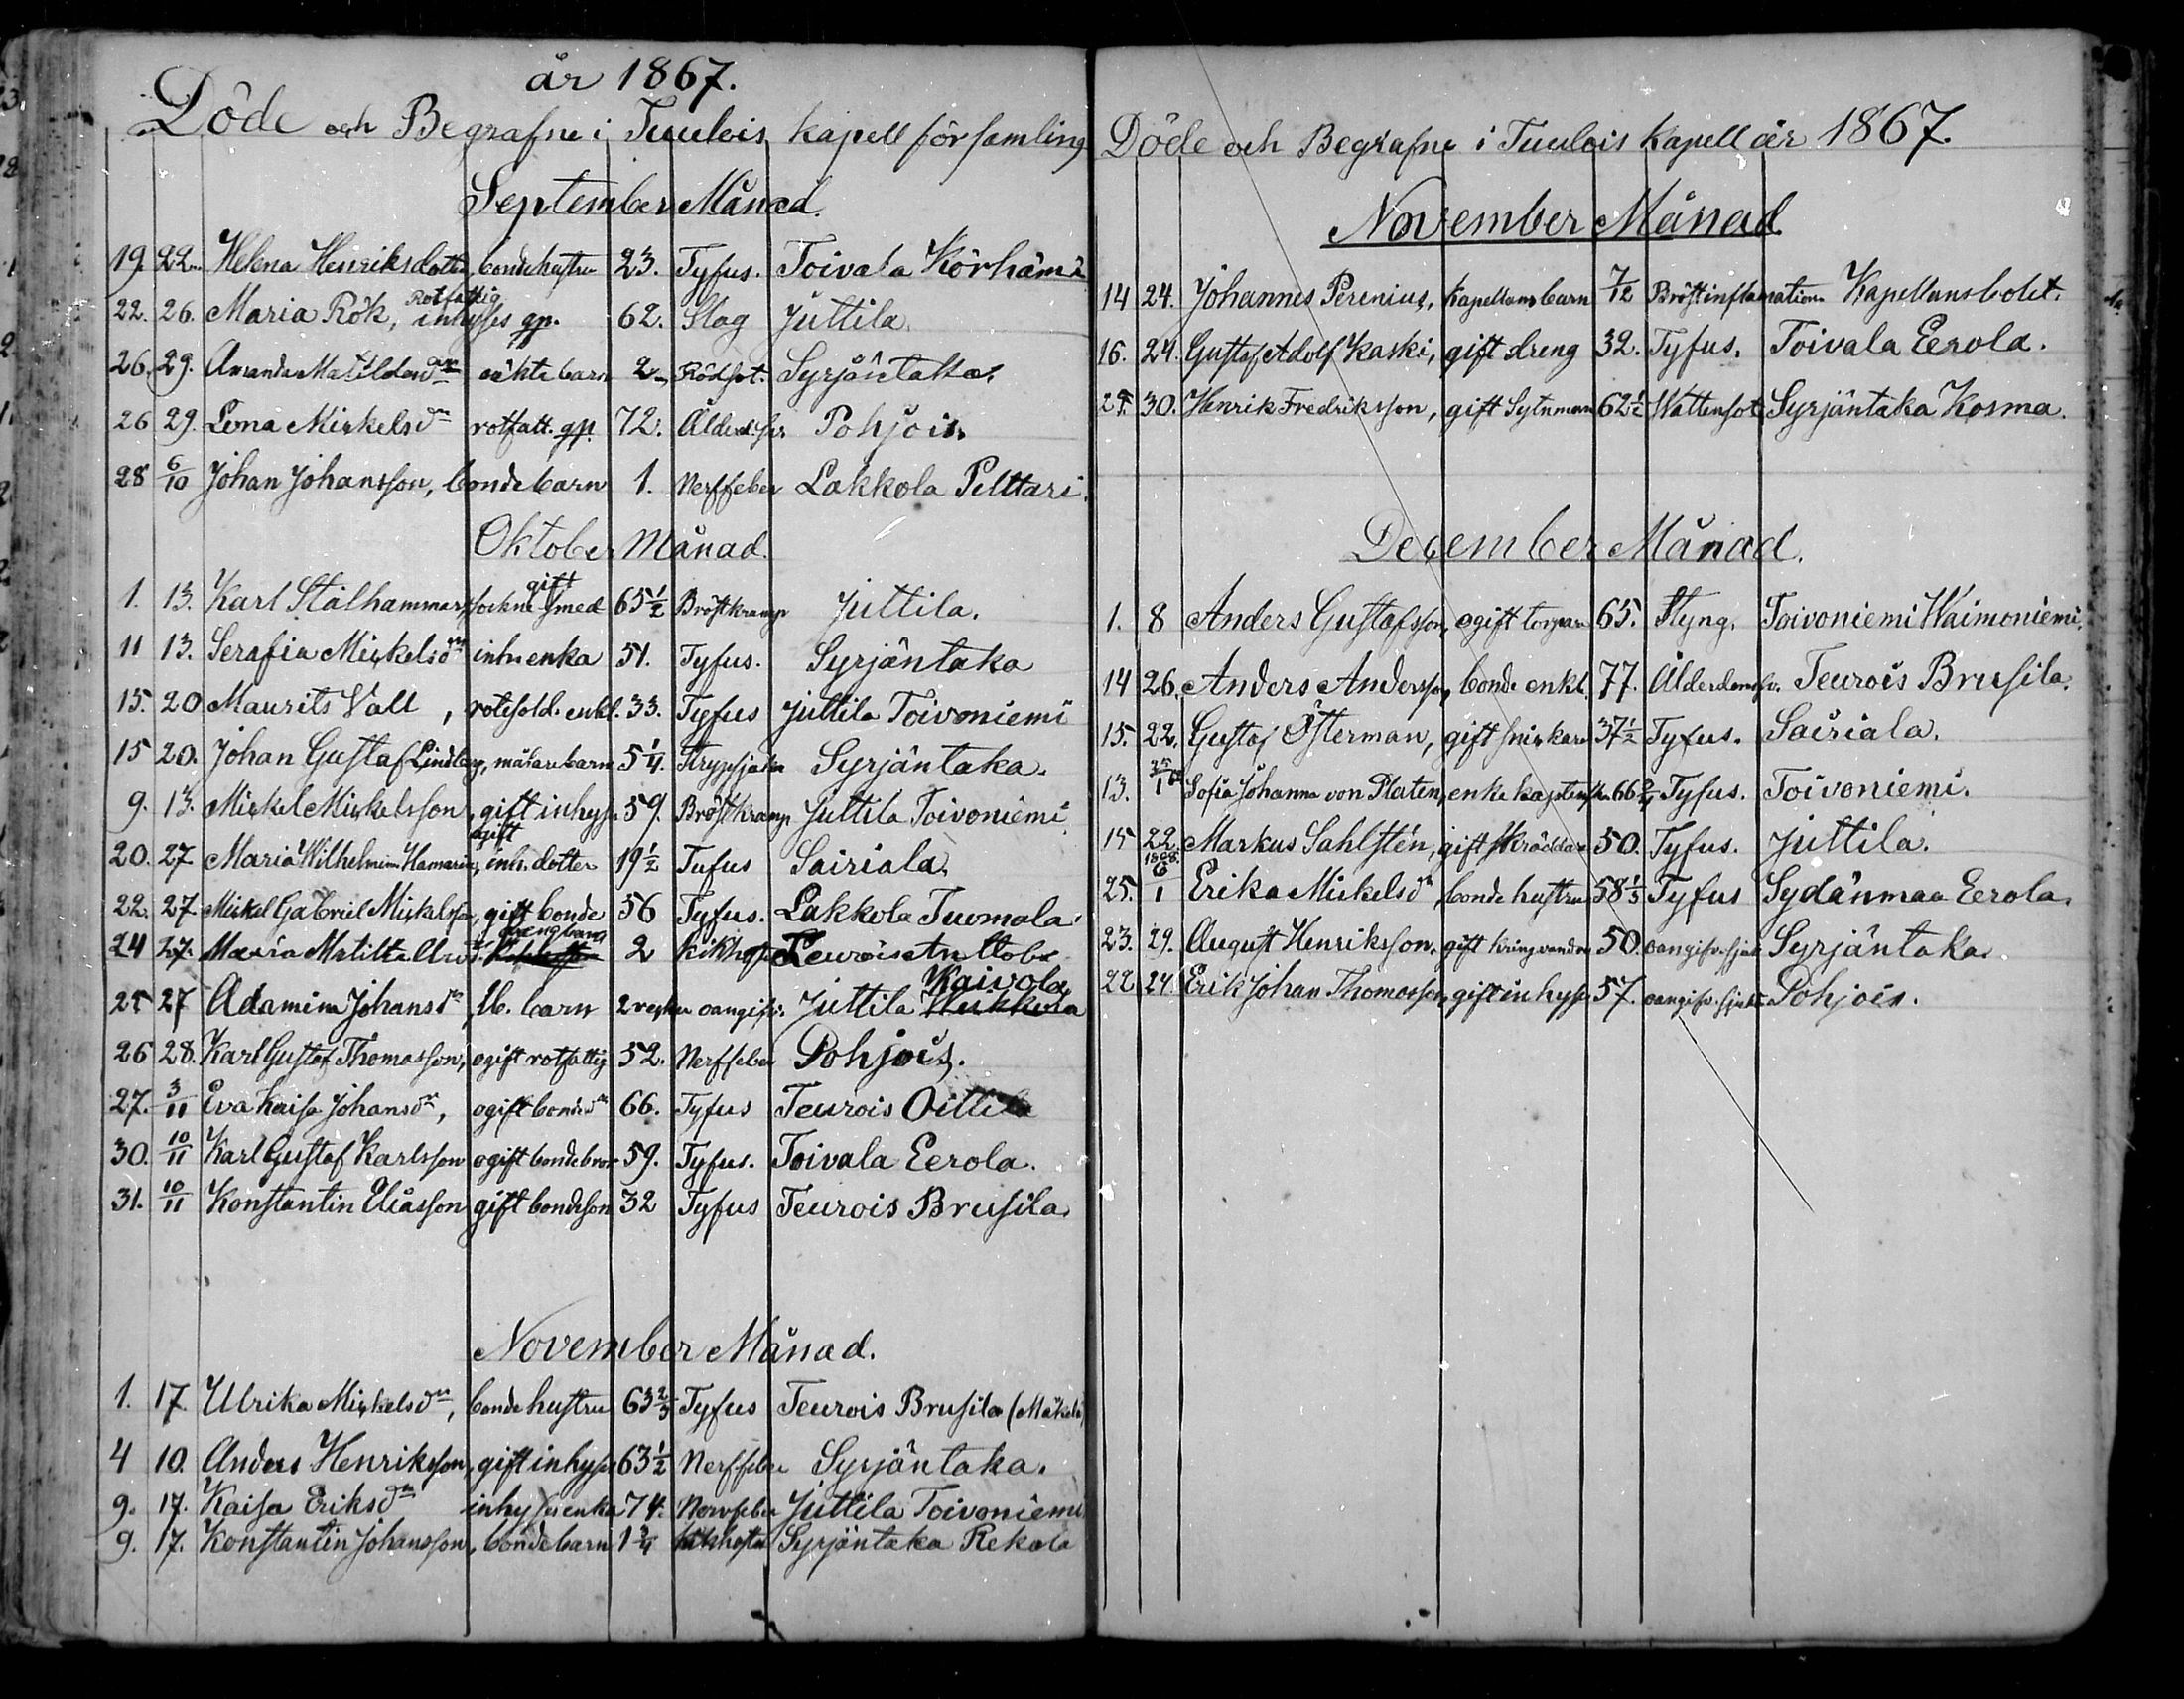 år 1867.
Döde och Begrafne i Tuulois kapell församling
September Månad.
19. 22. Helena Henriksdotter, bondehustru 23. Tyfus. Toivala Körhämä
Rotfattig
22. 26. Maria Rök, inhyses gp. 62. Slag Juttila.
26. 29. Amanda Matilda dr oäkta barn 2 Rödsot. Syrjäntaka.
26 29. Lena Mickelsdr rotfatt. gp. 72. Ålderd.sv. Pohjois.
28 6/10 Johan Johansson, bondebarn 1. Nerffeber Lakkola Pelttari.
Oktober Månad.
gift
1. 13. Karl Stålhammar, sockne smed 65 1/2 Bröstkramp Juttila.
11 13. Serafia Mickelsdr inh enka 51. Tyfus. Syrjäntaka
15. 20 Maurits Vall, rotesold. enkl. 33. Tyfus Juttila Toivoniemi
15 20. Johan Gustaf Lindberg, målarebarn 5 1/4. Strypsjuka Syrjäntaka.
9. 13. Mickel Mickelsson, gift inhyse 59. Bröstkramp Juttila Toivoniemi
ogift
20. 27 Maria Wilhelmina Hamarin, inh. dotter 19 1/2 Tufus Sairiala.
22. 27 Mickel Gabriel Mickelsson, gift bonde 56 Tyfus. Lakkola Tuomala.
drengbarn
24 27. Maria Matilta 2 Kikhosta Teurois
Kaivola
25 27 Adamina Johansdr, lb. barn 2 veckor oangifv. Juttila
26 28. Karl Gustaf Thomasson, ogift rotfattig 52. Nerffeber Pohjois.
27. 3/11 Eva Kaisa Johansdr, ogift bondedr 66. Tyfus Teurois Oittila
30. 10/11 Karl Gustaf Karlsson ogift bondebror 59. Tyfus. Toivala Eerola.
31. 10/11 Konstantin Eliasson gift bondeson 32 Tyfus Teurois Brusila.
November Månad.
1. 17. Ulrika Mickelsdr, bondehustru 63 2/3 Tyfus Teurois Brusila (Mäkelä)
4 10. Anders Henriksson, gift inhyse 63 1/2 Nerffeber Syrjäntaka.
9. 17. Kaisa Eriksdr inhysesenka 74. Nervfeber Juttila Toivoniemi
9. 17. Konstantin Johansson, bondebarn 1 3/4 kikhosta Syrjäntaka Rekola
Döde och Begrafne i Tuulois Kapell år 1867.
November Månad
14 24. Johannes Perenius, Kapellansbarn 7/12 Bröstinflamation Kapellansbolet.
16. 24. Gustaf Adolf Kaski, gift dreng 32. Tyfus. Toivala Eerola.
30. Henrik Fredriksson, gift Sytnman 62 1/2 Wattensot Syrjäntaka Kosma.
December Månad.
1. 8 Anders Gustafsson, ogift torpare 65. Styng. Toivoniemi Waimoniemi.
14 26. Anders Andersson, bonde enkl. 77. Ålderdomsv. Teurois Brusila.
15. 22. Gustaf Österman, gift snickare 37 1/2 Tyfus. Sairiala.
13. Sofia Johanna von Platen, enke kaptensk. 66 Tyfus. Toivoniemi.
15 22. Markus Sahlstén, gift skräddare 50. Tyfus. Juttila.
1868.
25. 6/1 Erika Mickelsdr, bonde hustru 58 1/3 Tyfus Sydänmaa Eerola.
23. 29. August Henriksson, gift kringvandra 50. oangifv. sjuk. Syrjäntaka.
22 24. Erik Johan Thomasson, gift inhyse 57. oangifv. sjukd. Pohjois.